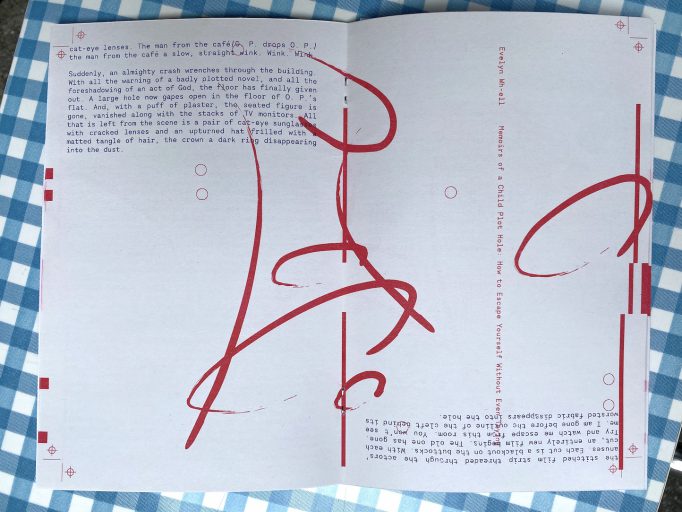 cat-eye lenses. The man from the café/O. P. drops O. P./
the man from the café a slow, straight wink. Wink. Wink.
Suddenly, an almighty crash wrenches through the building.
With all the warning of a badly plotted novel, and all the
foreshadowing of an act of God, the floor has finally given
out. A large hole now gapes open in the floor of O. P.'s
flat. And, with a puff of plaster, the seated figure is
gone, vanished along with the stacks of TV monitors. All
that is left from the scene is a pair of cat-eye sunglasses
with cracked lenses and an upturned hat frilled with a
matted tangle of hair, the crown a dark ring disappearing
into the dust.
Evelyn Wh-ell Memoirs of a Child Plot Hole: How to Escape Yourself Without Even
the stitched film strip threaded through the actors'
anuses. Each cut is a blackout on the buttocks. With each
cut, an entirely new film begins. The old one has gone.
Try and watch me escape from this room. You won't see
me. I am gone before the of the cleft behind its
worsted fabric disappears into the hole.